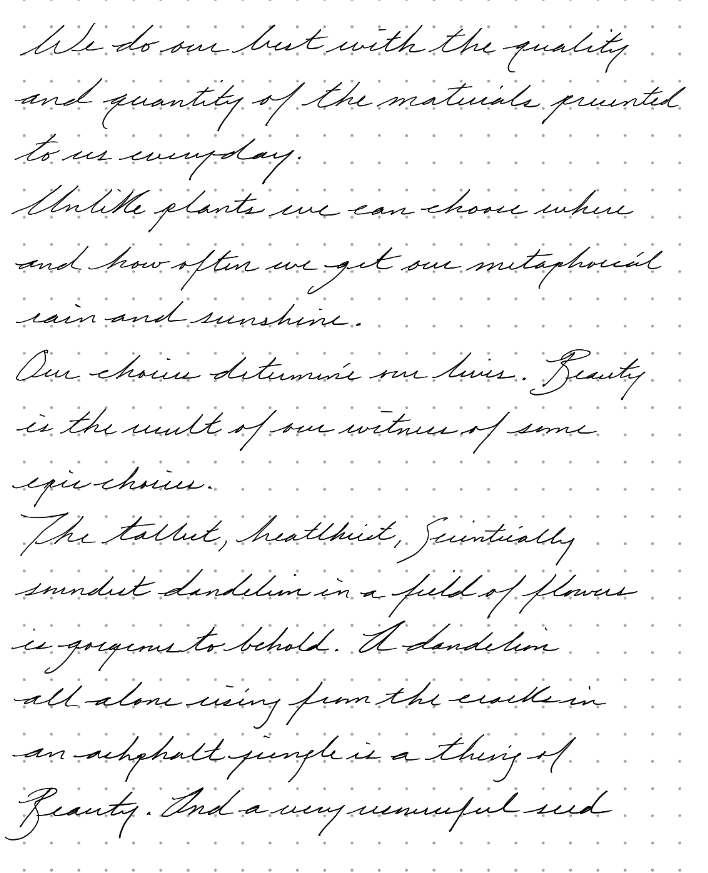 We do our best with the quality
and quantity of the materials presented
to us everyday.
Unlike plants we can choose where
and how often we get our metaphorical
rain and sunshine.
Our choices determine our lives. Beauty
is the result of our witness of some
epic choices.
The tallest, healthiest, Scientically
soundest dandelion in a field of flowers
is gorgeous to behold. A dandelion
all alone rising from the cracks in
an ashphalt jungle is a thing of
Beauty. And a very resourceful seed